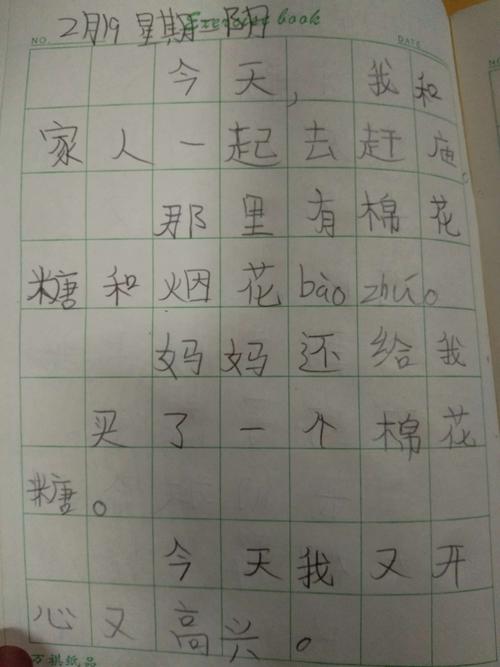 NO. Exercise book DATE
2月19 星期二 阴
今天,我和
家人一起去赶庙。
那里有棉花
糖和烟花bào zhúo。
妈妈还给我
买了一个棉花
糖。
今天我又开
心又高兴。
纸品